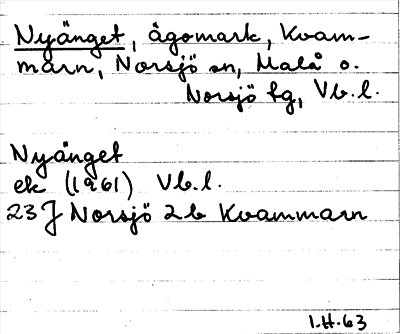 Nyänget, ägomark, Kvam-
marn, Norsjö sn, Malå o.
Norsjö tg, Vb.l.
Nyänget
ek (1961) Vb.l.
23J Norsjö 2b Kvammarn
I.H.63